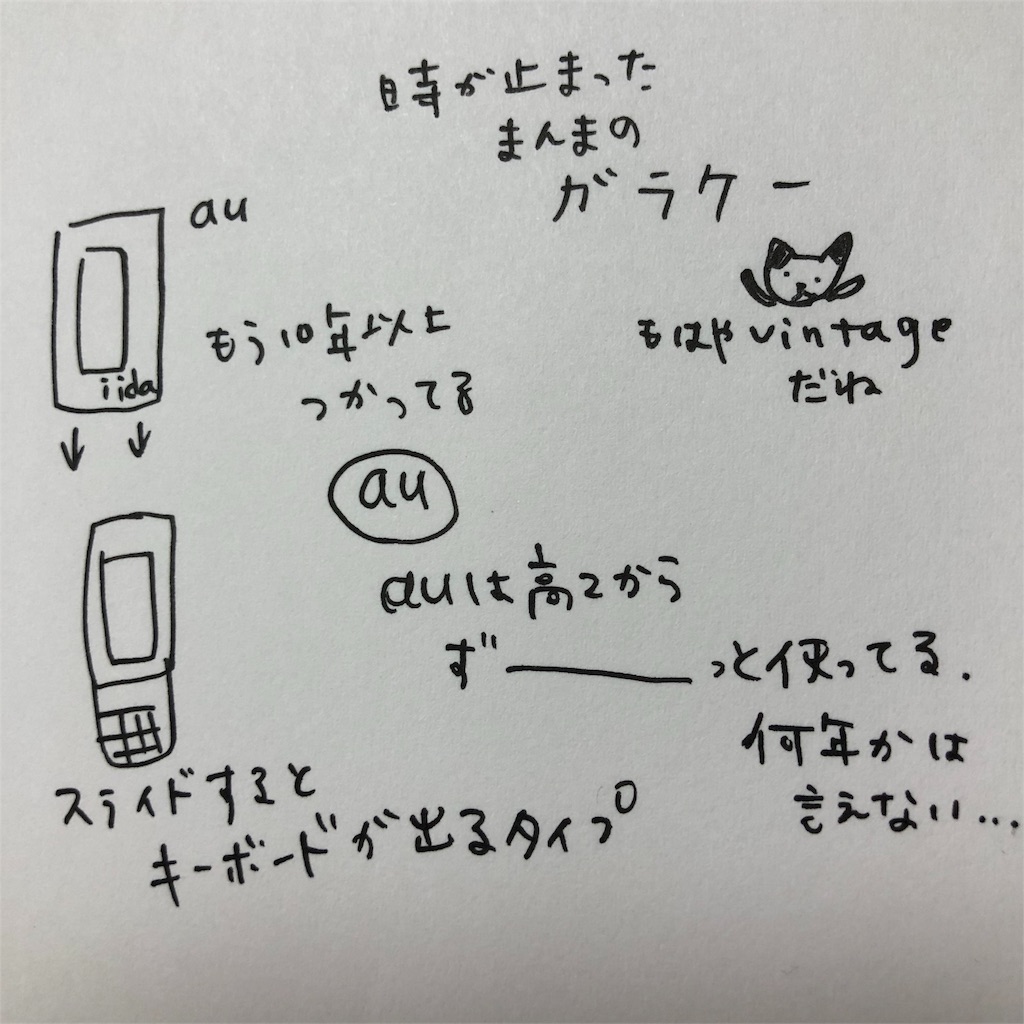 時が止まった
まんまの
ガラケー
au
iida
もう10年以上
つかってる
もはやvintage
だね
au
auは高2から
ず──っと使ってる.
何年かは
言えない...
スライドすると
キーボードが出るタイプ